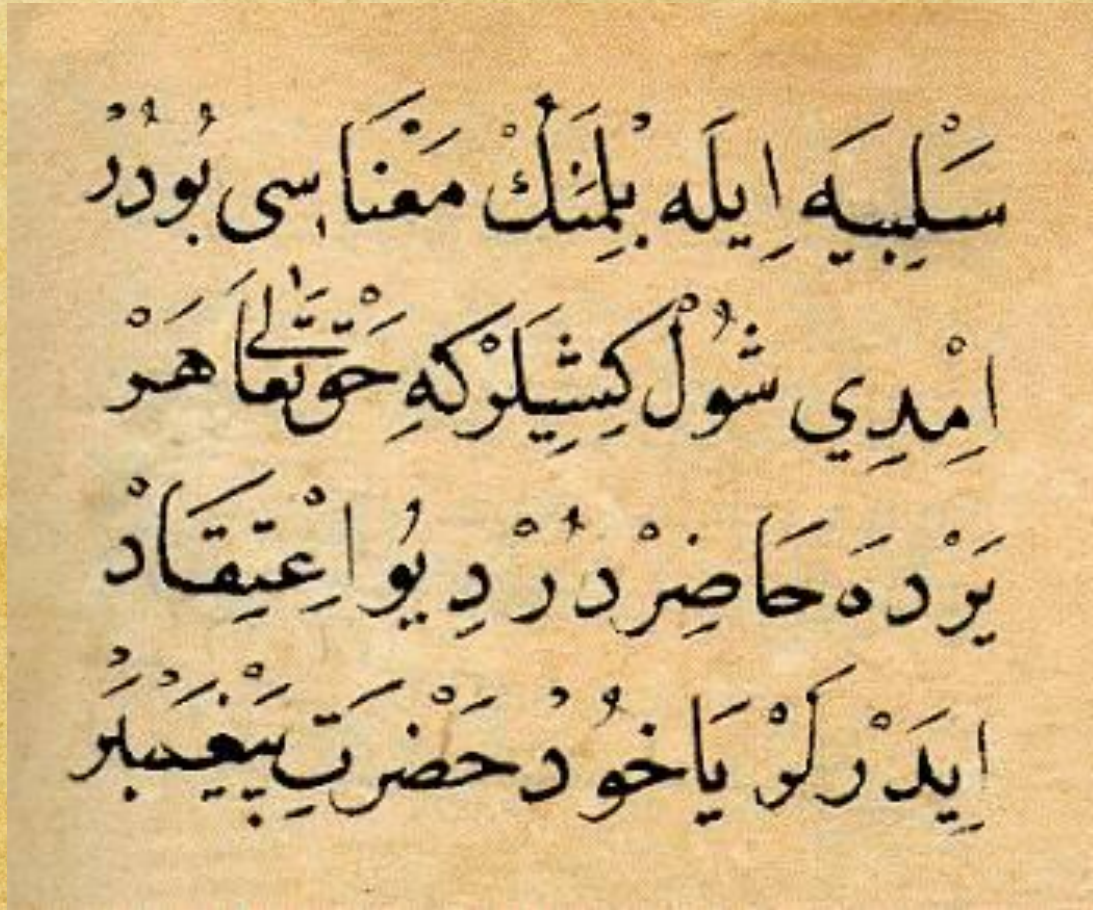 سَلْبِيَه اِيلَه بِلْمَنِكْ مَعْنَاسِى بُودُرْ
اِمْدِي شُولْ كِشِيلَرْ كِه حَقْ تَعَالٰى هَرْ
يَرْدَه حَاضِرْدُرْ دِيُو اِعْتِقَادْ
اِيدَرْلَرْ يَاخُودْ حَضْرَتِ پَيْغَمْبَرُ